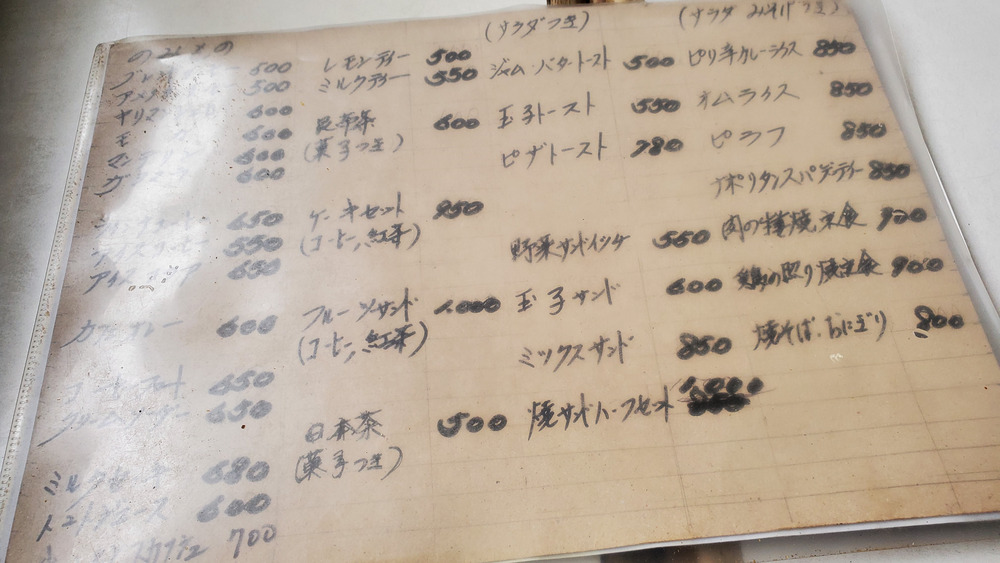 のみもの
ブレ 500
アメリ 500
600
モ 600
マンデリン 600
600
650
アイスコーヒー 550
アイス 650
カフェオレー 600
コー 650
クリームソーダー 650
ミルクセーキ 680
トマトジュース 600
700
レモンティー 500
ミルクティー 550
昆布茶 600
(菓子つき)
ケーキセット 950
(コーヒー、紅茶)
フルーツサンド 1,000
(コーヒー、紅茶)
日本茶 500
(菓子つき)
(サラダつき)
ジャムバタートースト 500
玉子トースト 550
ピザトースト 780
野菜サンドイッチ 550
玉子サンド 600
ミックスサンド 850
焼サンドハーフセット 1,000
(サラダ みそ汁つき)
ピリ辛カレーライス 850
オムライス 850
ピラフ 850
ナポリタンスパゲティー 850
肉の 焼定食 900
鶏の照り焼定食 900
焼そば、おにぎり 800